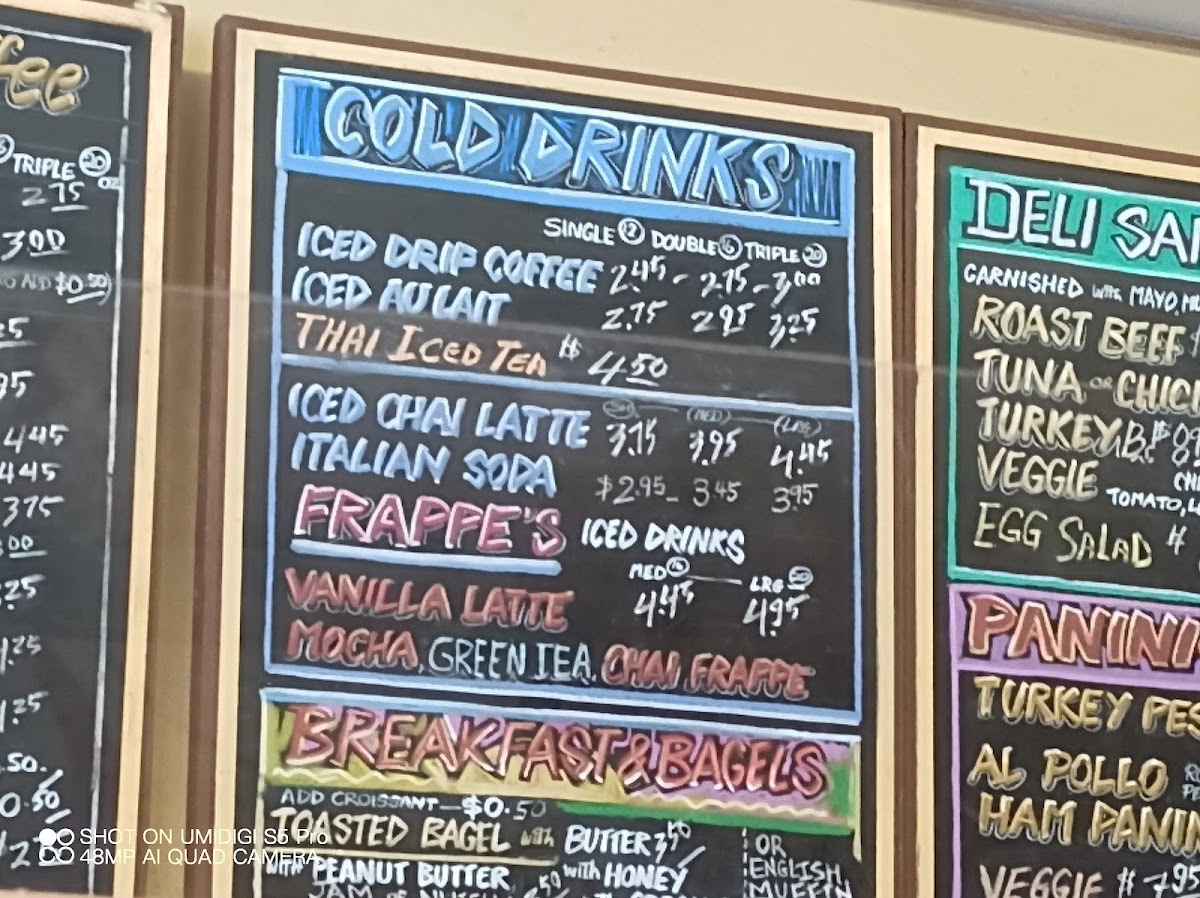 fee
TRIPLE 20 oz
2.75
3.00
ADD $0.50)
4.45
4.45
3.75
.25
.25
.25
.50
0.50
COLD DRINKS
SINGLE 12 DOUBLE 16 TRIPLE 20
ICED DRIP COFFEE 2.45 - 2.75 - 3.00
ICED AU LAIT 2.75 2.95 3.25
THAI ICED TEA $ 4.50
SM (MED) (LRG)
ICED CHAI LATTE 3.75 3.95 4.45
ITALIAN SODA $2.95 - 3.45 3.95
FRAPPE'S ICED DRINKS
MED 16 LRG 20
VANILLA LATTE 4.45 4.95
MOCHA, GREEN TEA, CHAI FRAPPE
BREAKFAST & BAGELS
ADD CROISSANT - $0.50
TOASTED BAGEL with BUTTER 3.50
with PEANUT BUTTER with HONEY
OR
ENGLISH
MUFFIN
DELI SA
GARNISHED with MAYO, MU
ROAST BEEF
TUNA OR CHIC
TURKEY
VEGGIE
TOMATO, LE
EGG SALAD $
PANINI
TURKEY PES
AL POLLO
HAM PANIN
VEGGIE $ 7.95
SHOT ON UMIDIGI S5 Pro
48MP AI QUAD CAMERA